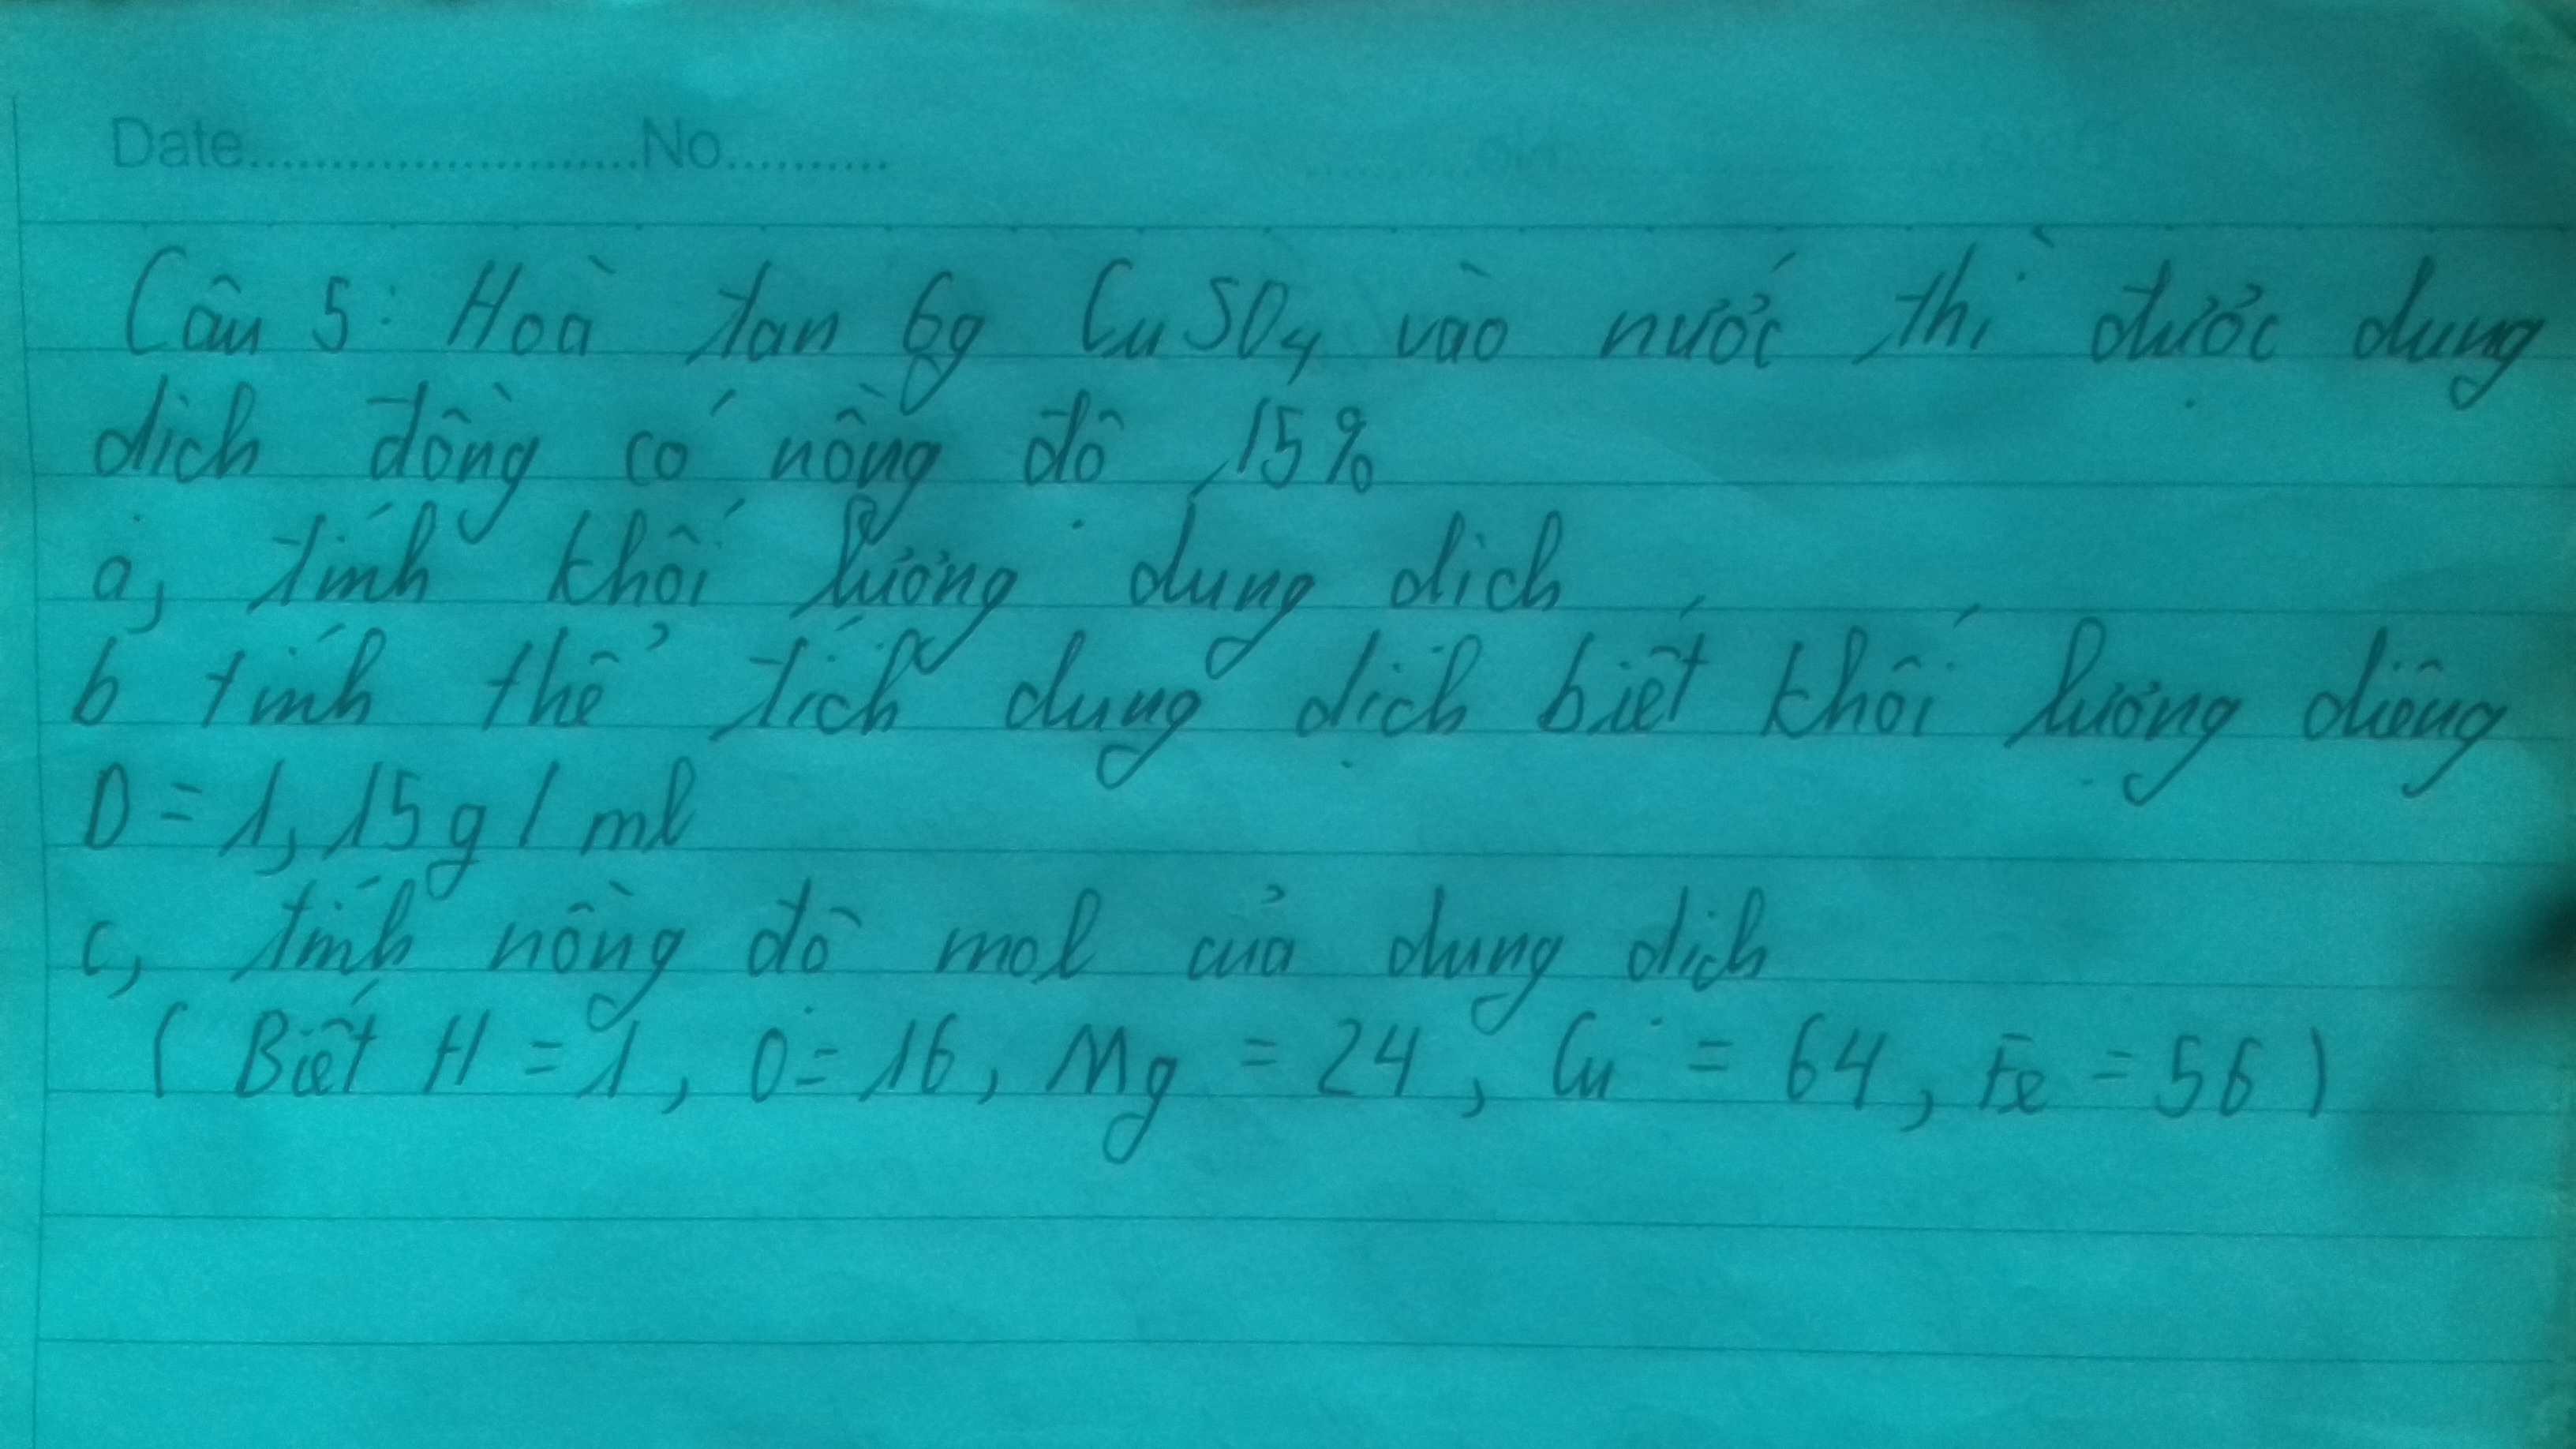 Date........................No..........
Câu 5: Hoà tan 6g CuSO4 vào nước thì được dung
dịch đồng có nồng độ 15%
a, tính khối lượng dung dịch
b tính thể tích dung dịch biết khối lượng diêng
D = 1,15g/ml
c, tính nồng độ mol của dung dịch
( Biết H = 1, O = 16, Mg = 24, Cu = 64, Fe = 56 )